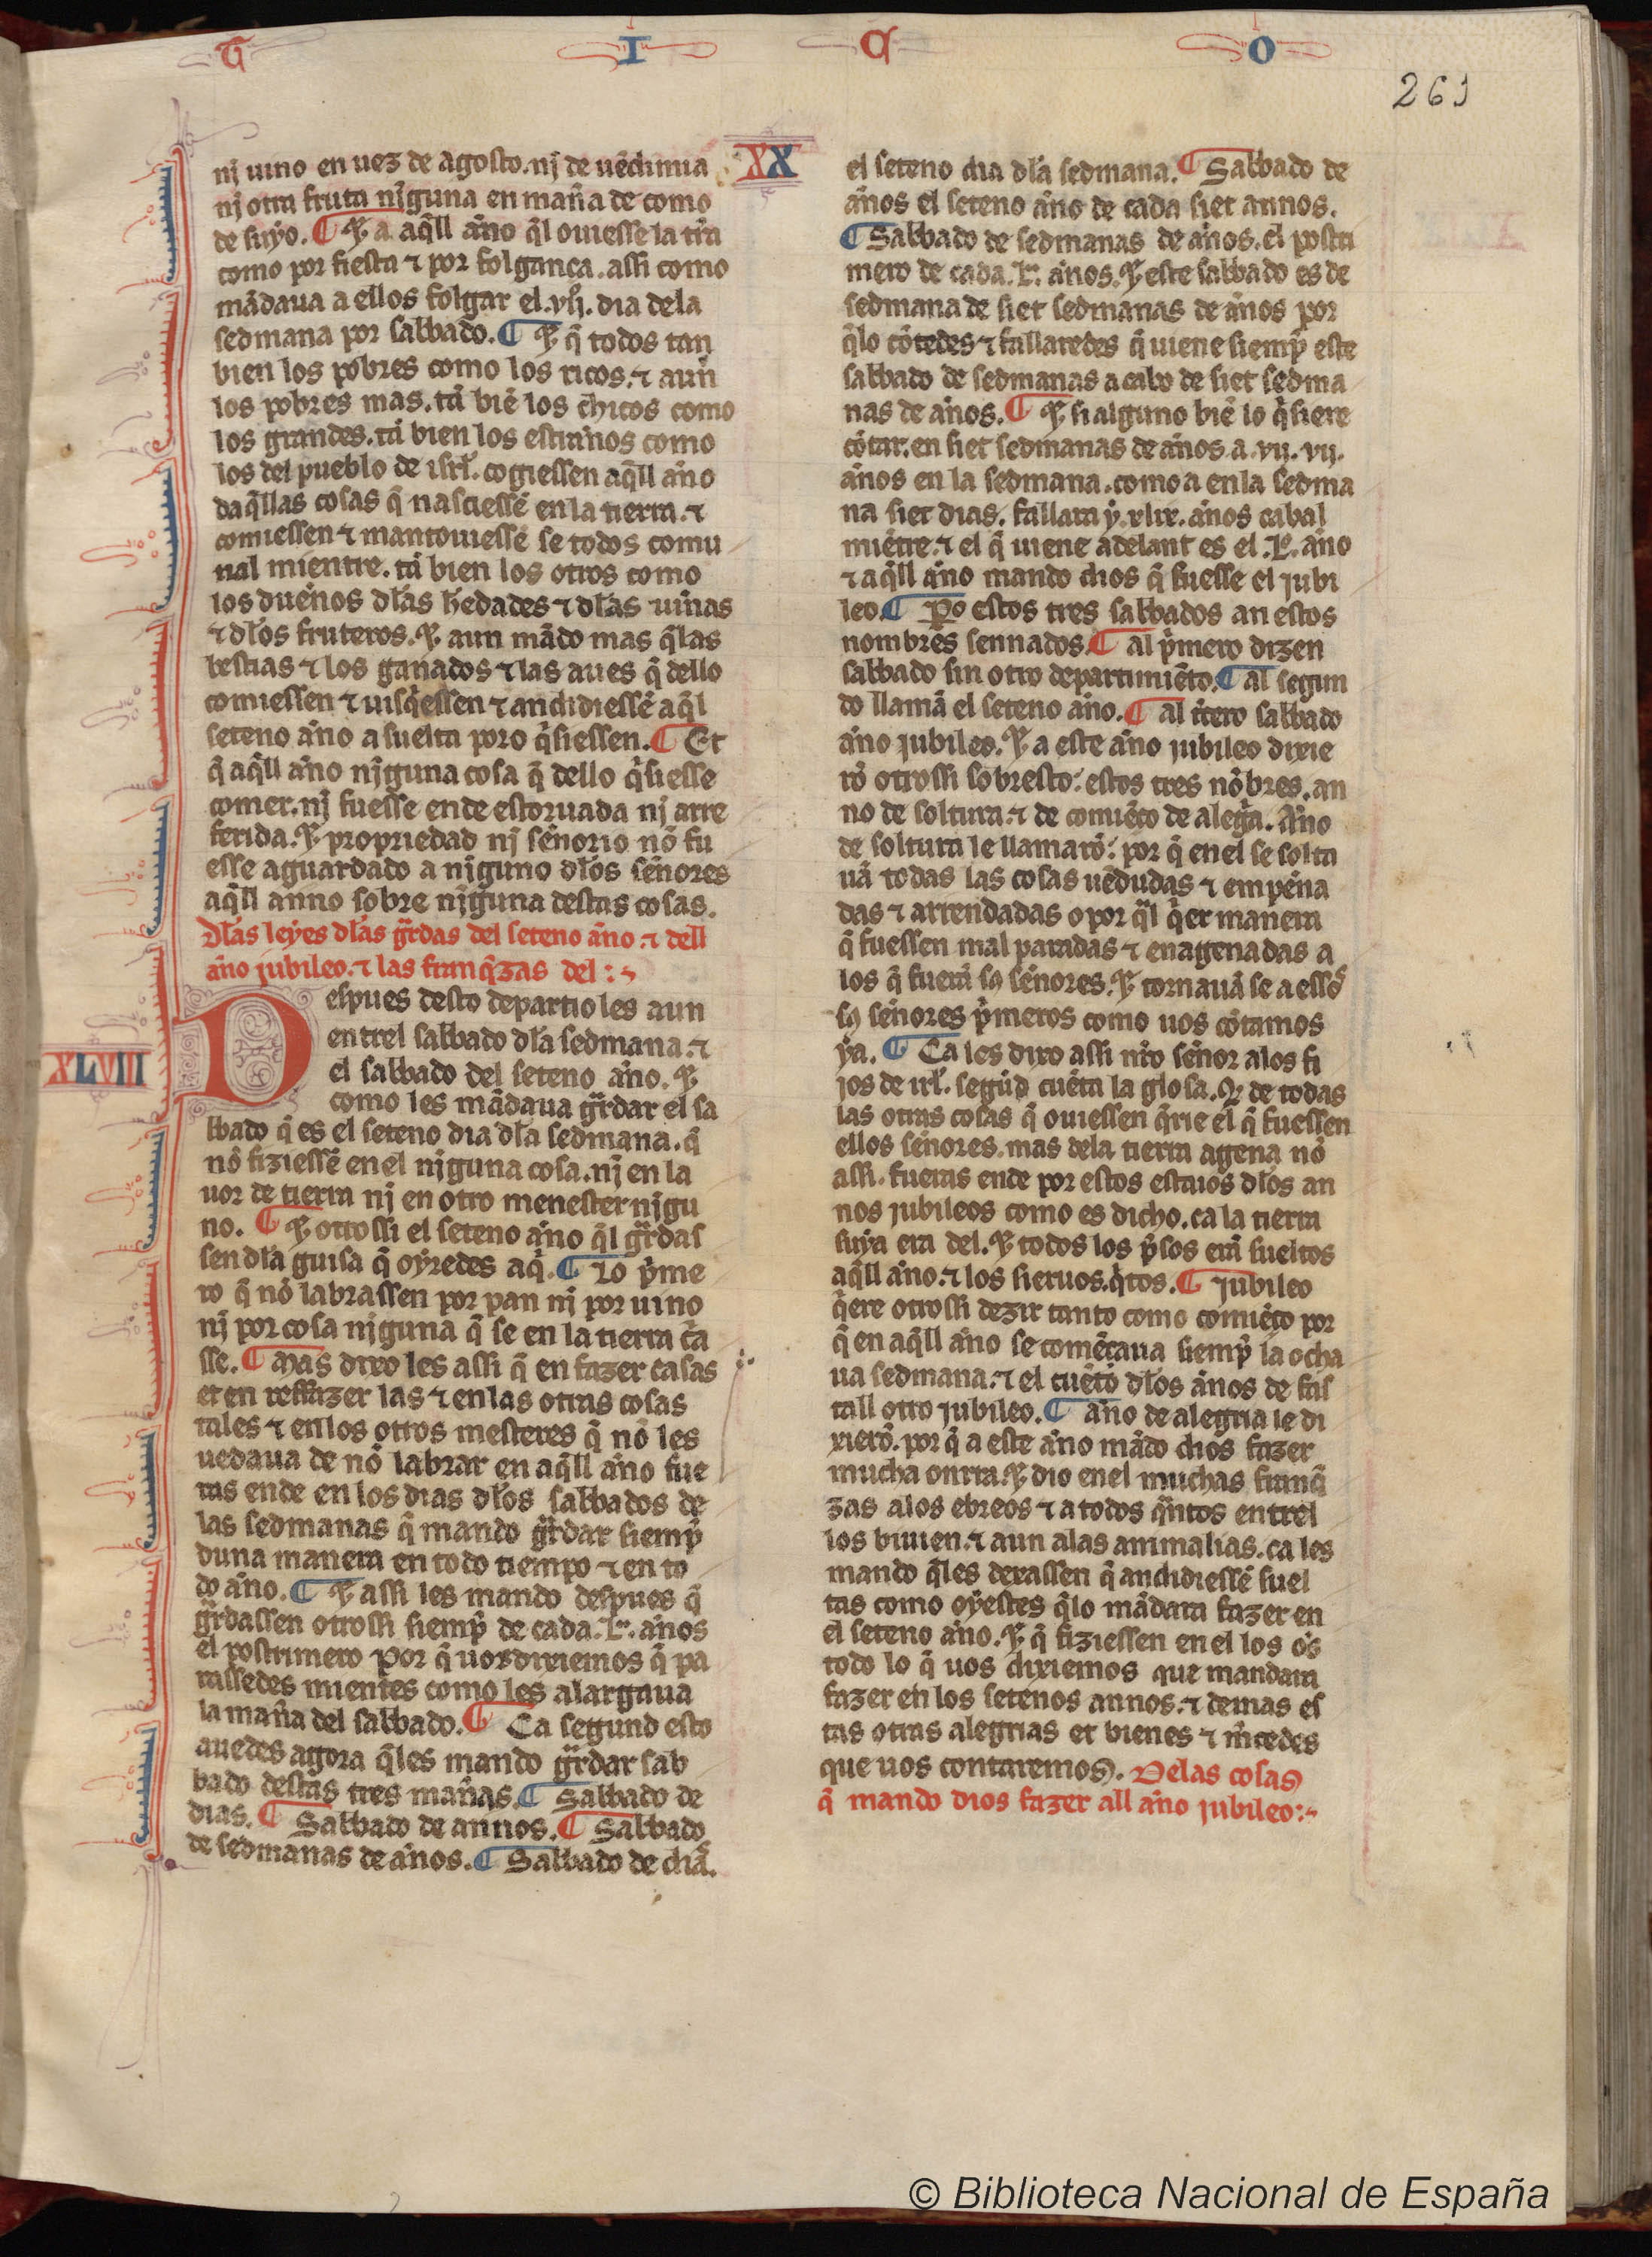 T I C O
261
nj uino en uez de agosto. nj de uẽdimia
nj otra fruta njguna en maña de como
de suyo. ¶ Et a aq̃ll año q̃l ouiesse la tr̃a
como por fiesta ⁊ por folgança. assi como
mãdaua a ellos folgar el .vij. dia dela
sedmana por sabbado. ¶ Et q̃ todos tan
bien los pobres como los ricos. ⁊ aun
los pobres mas. tã biẽ los chicos como
los grandes. tã bien los estraños como
los del pueblo de isrl̃. cogiessen aq̃ll año
daq̃llas cosas q̃ nasciessẽ en la tierra. ⁊
comiessen ⁊ mantouiessẽ se todos comu
nal mientre. tã bien los otros como
los dueños dl̃as h̃edades ⁊ dl̃as uiñas
⁊ dl̃os fruteros. Et aun mãdo mas q̃ las
bestias ⁊ los ganados ⁊ las aues q̃ dello
comiessen ⁊ uisq̃essen ⁊ andidiessẽ aq̃l
seteno año a suelta por o q̃siessen. ¶ Et
q̃ aq̃ll año njguna cosa q̃ dello q̃siesse
comer. nj fuesse ende estoruada nj arre
ferida. Et propriedad nj señorio nõ fu
esse aguardado a njguno dl̃os señores
aq̃ll anno sobre njguna destas cosas.
Dl̃as leyes dl̃as gr̃das del seteno año. ⁊ dell
año jubileo. ⁊ las franq̃zas del :~
XLVIII
Despues desto departio les aun
entrel sabbado dl̃a sedmana. ⁊
el sabbado del seteno año. Et
como les mãdaua gr̃dar el sa
bbado q̃ es el seteno dia dl̃a sedmana. q̃
nõ fiziessẽ en el njguna cosa. nj en la
uor de tierra nj en otro menester njgu
no. ¶ Et otrossi el seteno año q̃l gr̃das
sen dl̃a guisa q̃ oyredes aq̃. ¶ Lo p̃me
ro q̃ nõ labrassen por pan nj por uino
nj por cosa njguna q̃ se en la tierra c̃a
sse. ¶ Mas dixo les assi q̃ en fazer casas
et en reffazer las ⁊ en las otras cosas
tales ⁊ en los otros mesteres q̃ nõ les
uedaua de nõ labrar en aq̃ll año fue
ras ende en los dias dl̃os sabbados de
las sedmanas q̃ mando gr̃dar siemp̃
duna manera en todo tiempo ⁊ en to
do año. ¶ Et assi les mando despues q̃
gr̃dassen otrossi siemp̃ de cada .L. años
el postrimero Por q̃ uos dixiemos q̃ pa
rassedes mientes como les alargaua
la maña del sabbado. ¶ Ca segund esto
auedes agora q̃ les mando gr̃dar sab
bado destas tres mañas. ¶ Sabbado de
dias. ¶ Sabbado de annos. ¶ Sabbado
de sedmanas de años. ¶ Sabbado de diã.
XX
el seteno dia dl̃a sedmana. ¶ Sabbado de
años el seteno año de cada siet annos.
¶ Sabbado de sedmanas de años. el postri
mero de cada .L. años. Et este sabbado es de
sedmana de siet sedmanas de años por
q̃ lo cõtedes ⁊ fallaredes q̃ uiene siemp̃ este
sabbado de sedmanas a cabo de siet sedma
nas de años. ¶ Et si alguno biẽ lo q̃siere
cõtar. en siet sedmanas de años. a .vij. vij.
años en la sedmana. como a en la sedma
na siet dias. fallara y .xlix. años cabal
miẽtre. ⁊ el q̃ uiene adelant es el .Lº. año
⁊ aq̃ll año mando dios q̃ fuesse el jubi
leo. ¶ P̃o estos tres sabbados an estos
nombres sennados. ¶ al p̃mero dizen
sabbado sin otro departimiẽto. ¶ al segun
do llamã el seteno año. ¶ al t̃cero sabbado
año jubileo. Et a este año jubileo dixie
rõ otrossi sobresto: estos tres nõbres. an
no de soltura. ⁊ de comiẽço de aleg̃a. Año
de soltura le llamarõ: por q̃ en el se solta
uã todas las cosas uẽdudas ⁊ empeña
das ⁊ arrendadas o por q̃l q̃er manera
q̃ fuessen mal paradas ⁊ enagenadas a
los q̃ fuerã sꝯ señores. Et tornauã se a essos
sꝯ señores p̃meros como uos cõtamos
ya. ¶ Ca les dixo assi nr̃o señor a los fi
jos de irl̃. segũd cuẽta la glosa. Q̃ de todas
las otras cosas q̃ ouiessen q̃rie el q̃ fuessen
ellos señores. mas dela tierra agena nõ
assi. fueras ende por estos estaios dl̃os an
nos jubileos como es dicho. ca la tierra
suya era del. Et todos los p̃sos erã sueltos
aq̃ll año. ⁊ los sieruos. q̃tos. ¶ Jubileo
q̃ere otrossi dezir tanto como comiẽço por
q̃ en aq̃ll año se comẽçaua siemp̃ la ocha
ua sedmana. ⁊ el cuẽto dl̃os años de fas
tall otro jubileo. ¶ año de alegria le di
xierõ. por q̃ a este año mãdo dios fazer
mucha onrra. Et dio en el muchas franq̃
zas alos ebreos ⁊ a todos q̃ntos entrel
los biuien. ⁊ aun alas animalias. ca les
mando q̃ les dexassen q̃ andidiessẽ suel
tas como oyestes q̃ lo mãdara fazer en
el seteno año. Et q̃ fiziessen en el los os̃
todo lo q̃ uos dixiemos que mandara
fazer en los setenos annos. ⁊ demas es
tas otras alegrias et bienes ⁊ m̃cedes
que uos contaremos. Delas cosas
q̃ mando dios fazer all año jubileo :~
© Biblioteca Nacional de España